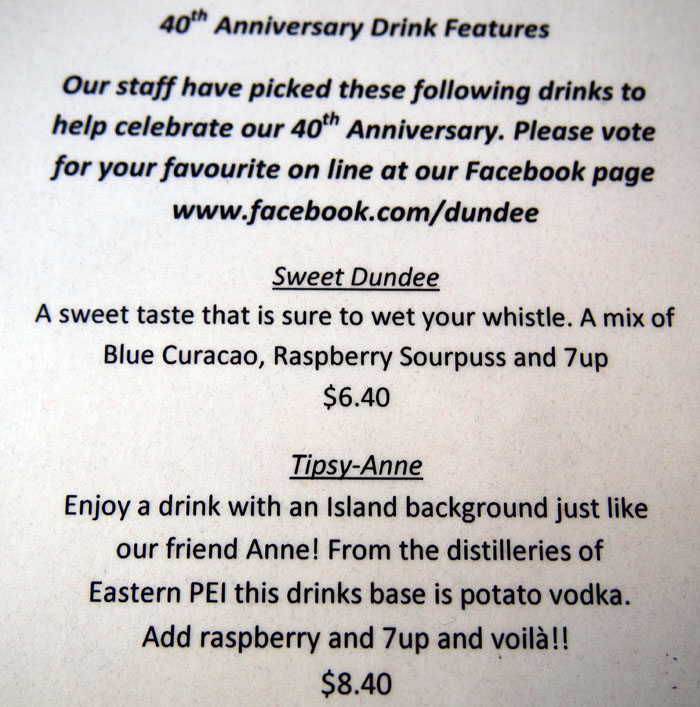 40th Anniversary Drink Features
Our staff have picked these following drinks to
help celebrate our 40th Anniversary. Please vote
for your favourite on line at our Facebook page
www.facebook.com/dundee
Sweet Dundee
A sweet taste that is sure to wet your whistle. A mix of
Blue Curacao, Raspberry Sourpuss and 7up
$6.40
Tipsy-Anne
Enjoy a drink with an Island background just like
our friend Anne! From the distilleries of
Eastern PEI this drinks base is potato vodka.
Add raspberry and 7up and voilà!!
$8.40